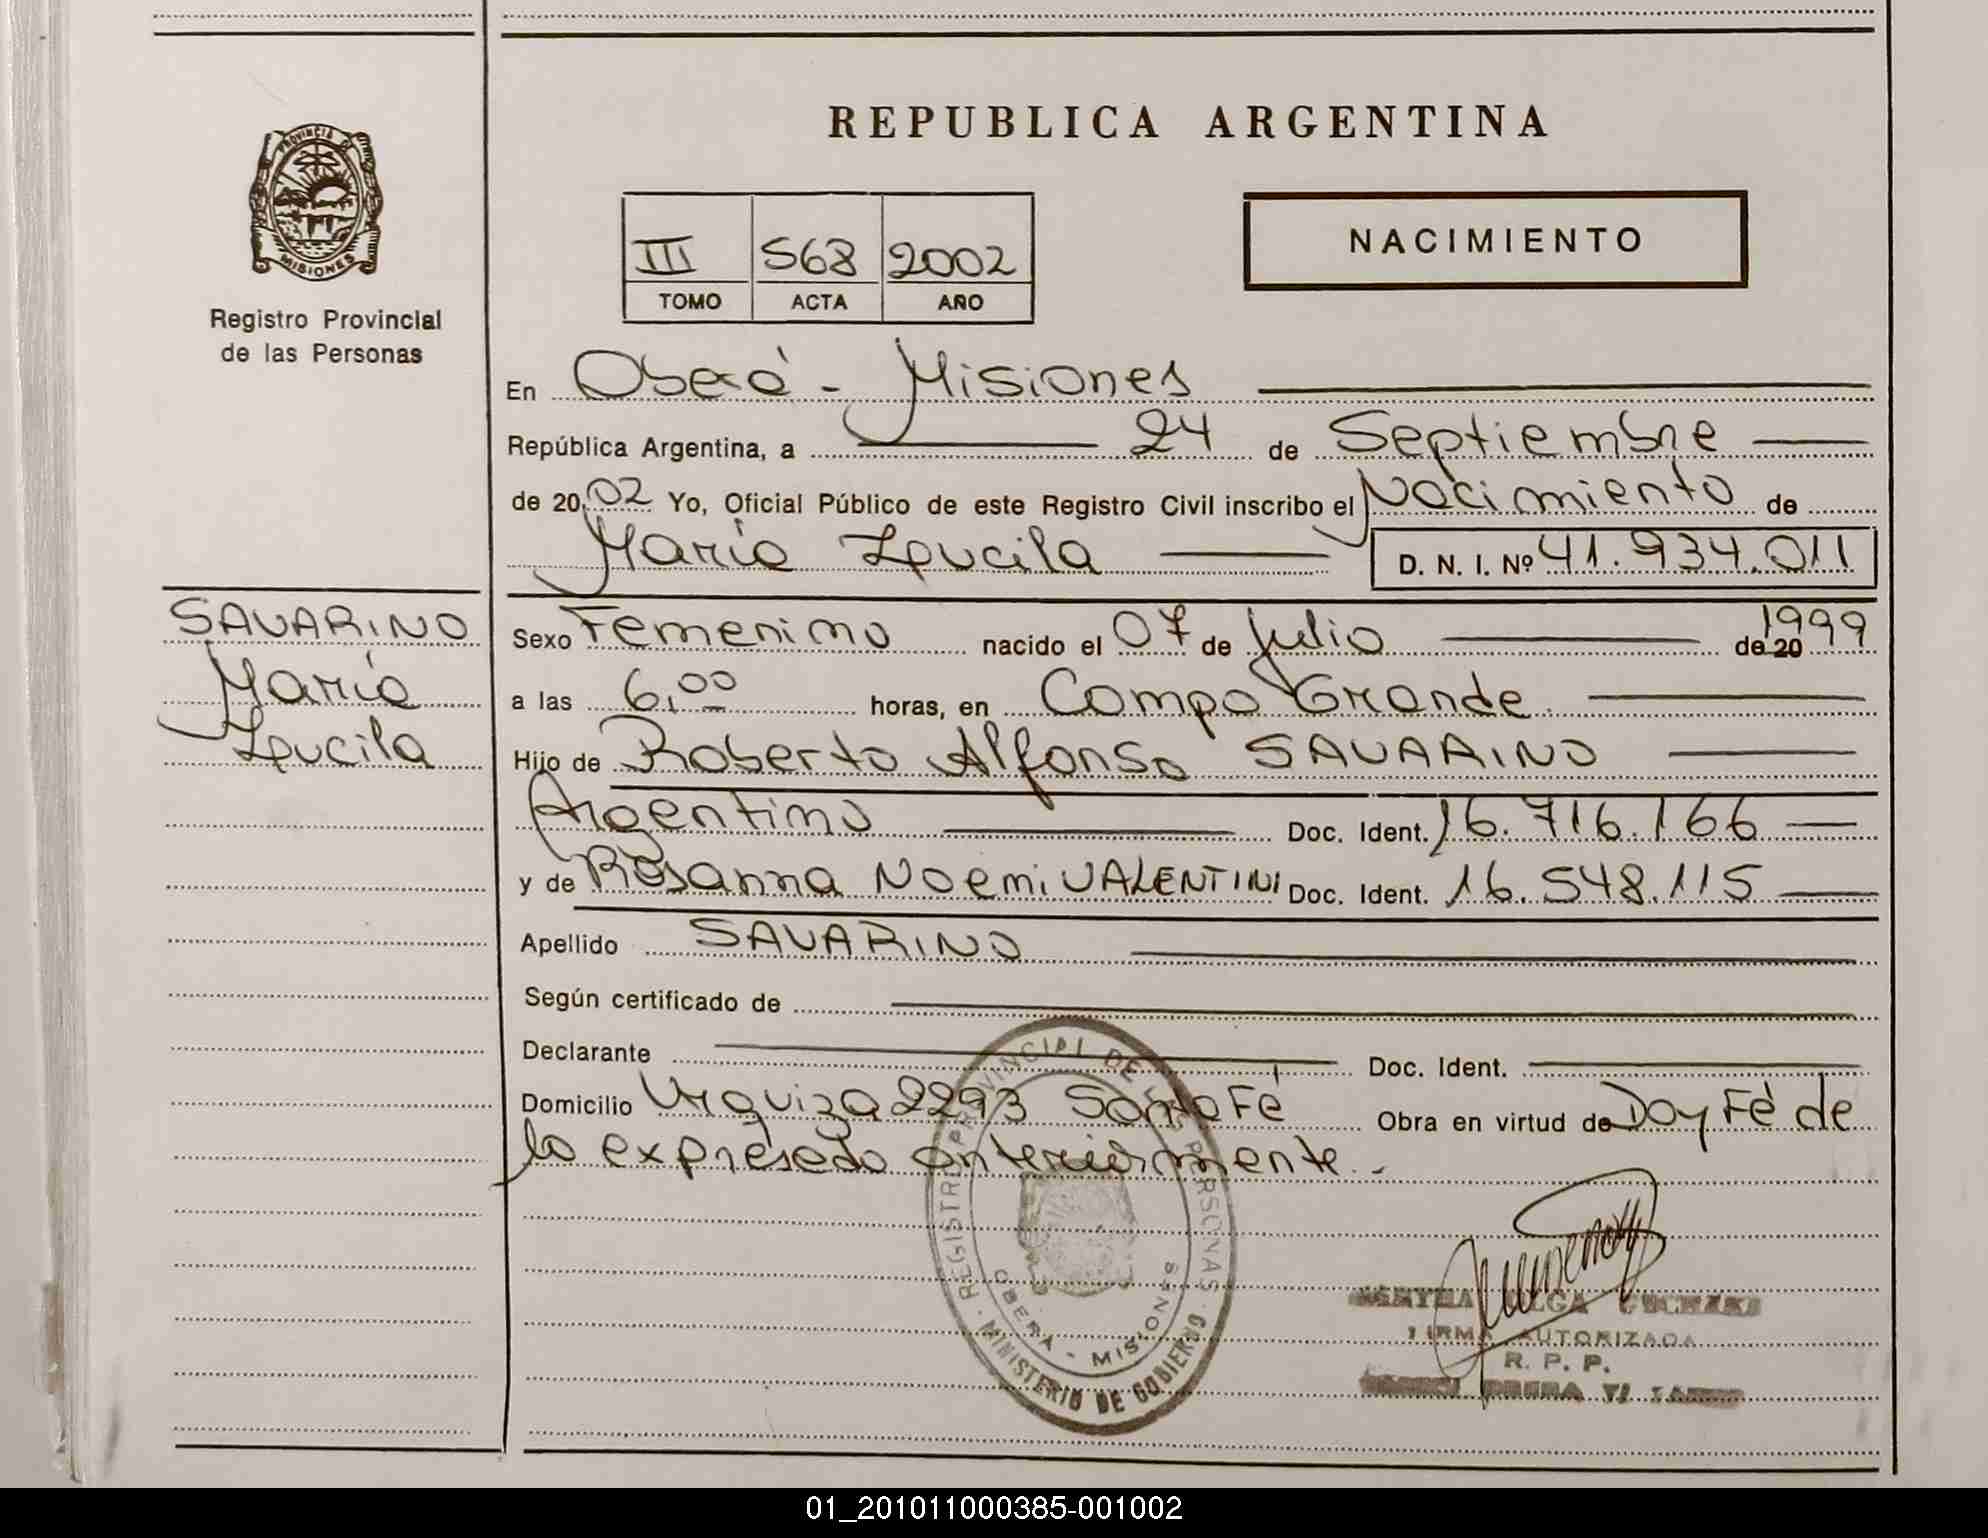 PROVINCIA DE
MISIONES
Registro Provincial
de las Personas
REPUBLICA ARGENTINA
III 568 2002
TOMO ACTA AÑO
NACIMIENTO
En Oberá - Misiones
República Argentina, a 24 de Septiembre
de 2002 Yo, Oficial Público de este Registro Civil inscribo el Nacimiento de
María Leucila D. N. I. Nº 41.934.011
SAVARINO
María
Leucila
Sexo Femenino nacido el 07 de Julio de 20 1999
a las 6,00 horas, en Campo Grande
Hijo de Roberto Alfonso SAVARINO
Argentino Doc. Ident. 16.716.166
y de Rosanna Noemi VALENTINI Doc. Ident. 16.548.115
Apellido SAVARINO
Según certificado de
Declarante Doc. Ident.
Domicilio Urquiza 2293 Santa Fé Obra en virtud de Doy Fé de
lo expresado anteriormente.-
REGISTRO PROVINCIAL DE LAS PERSONAS
OBERA - MISIONES
MINISTERIO DE GOBIERNO
OLGA
FIRMA AUTORIZADA
R. P. P.
01_201011000385-001002